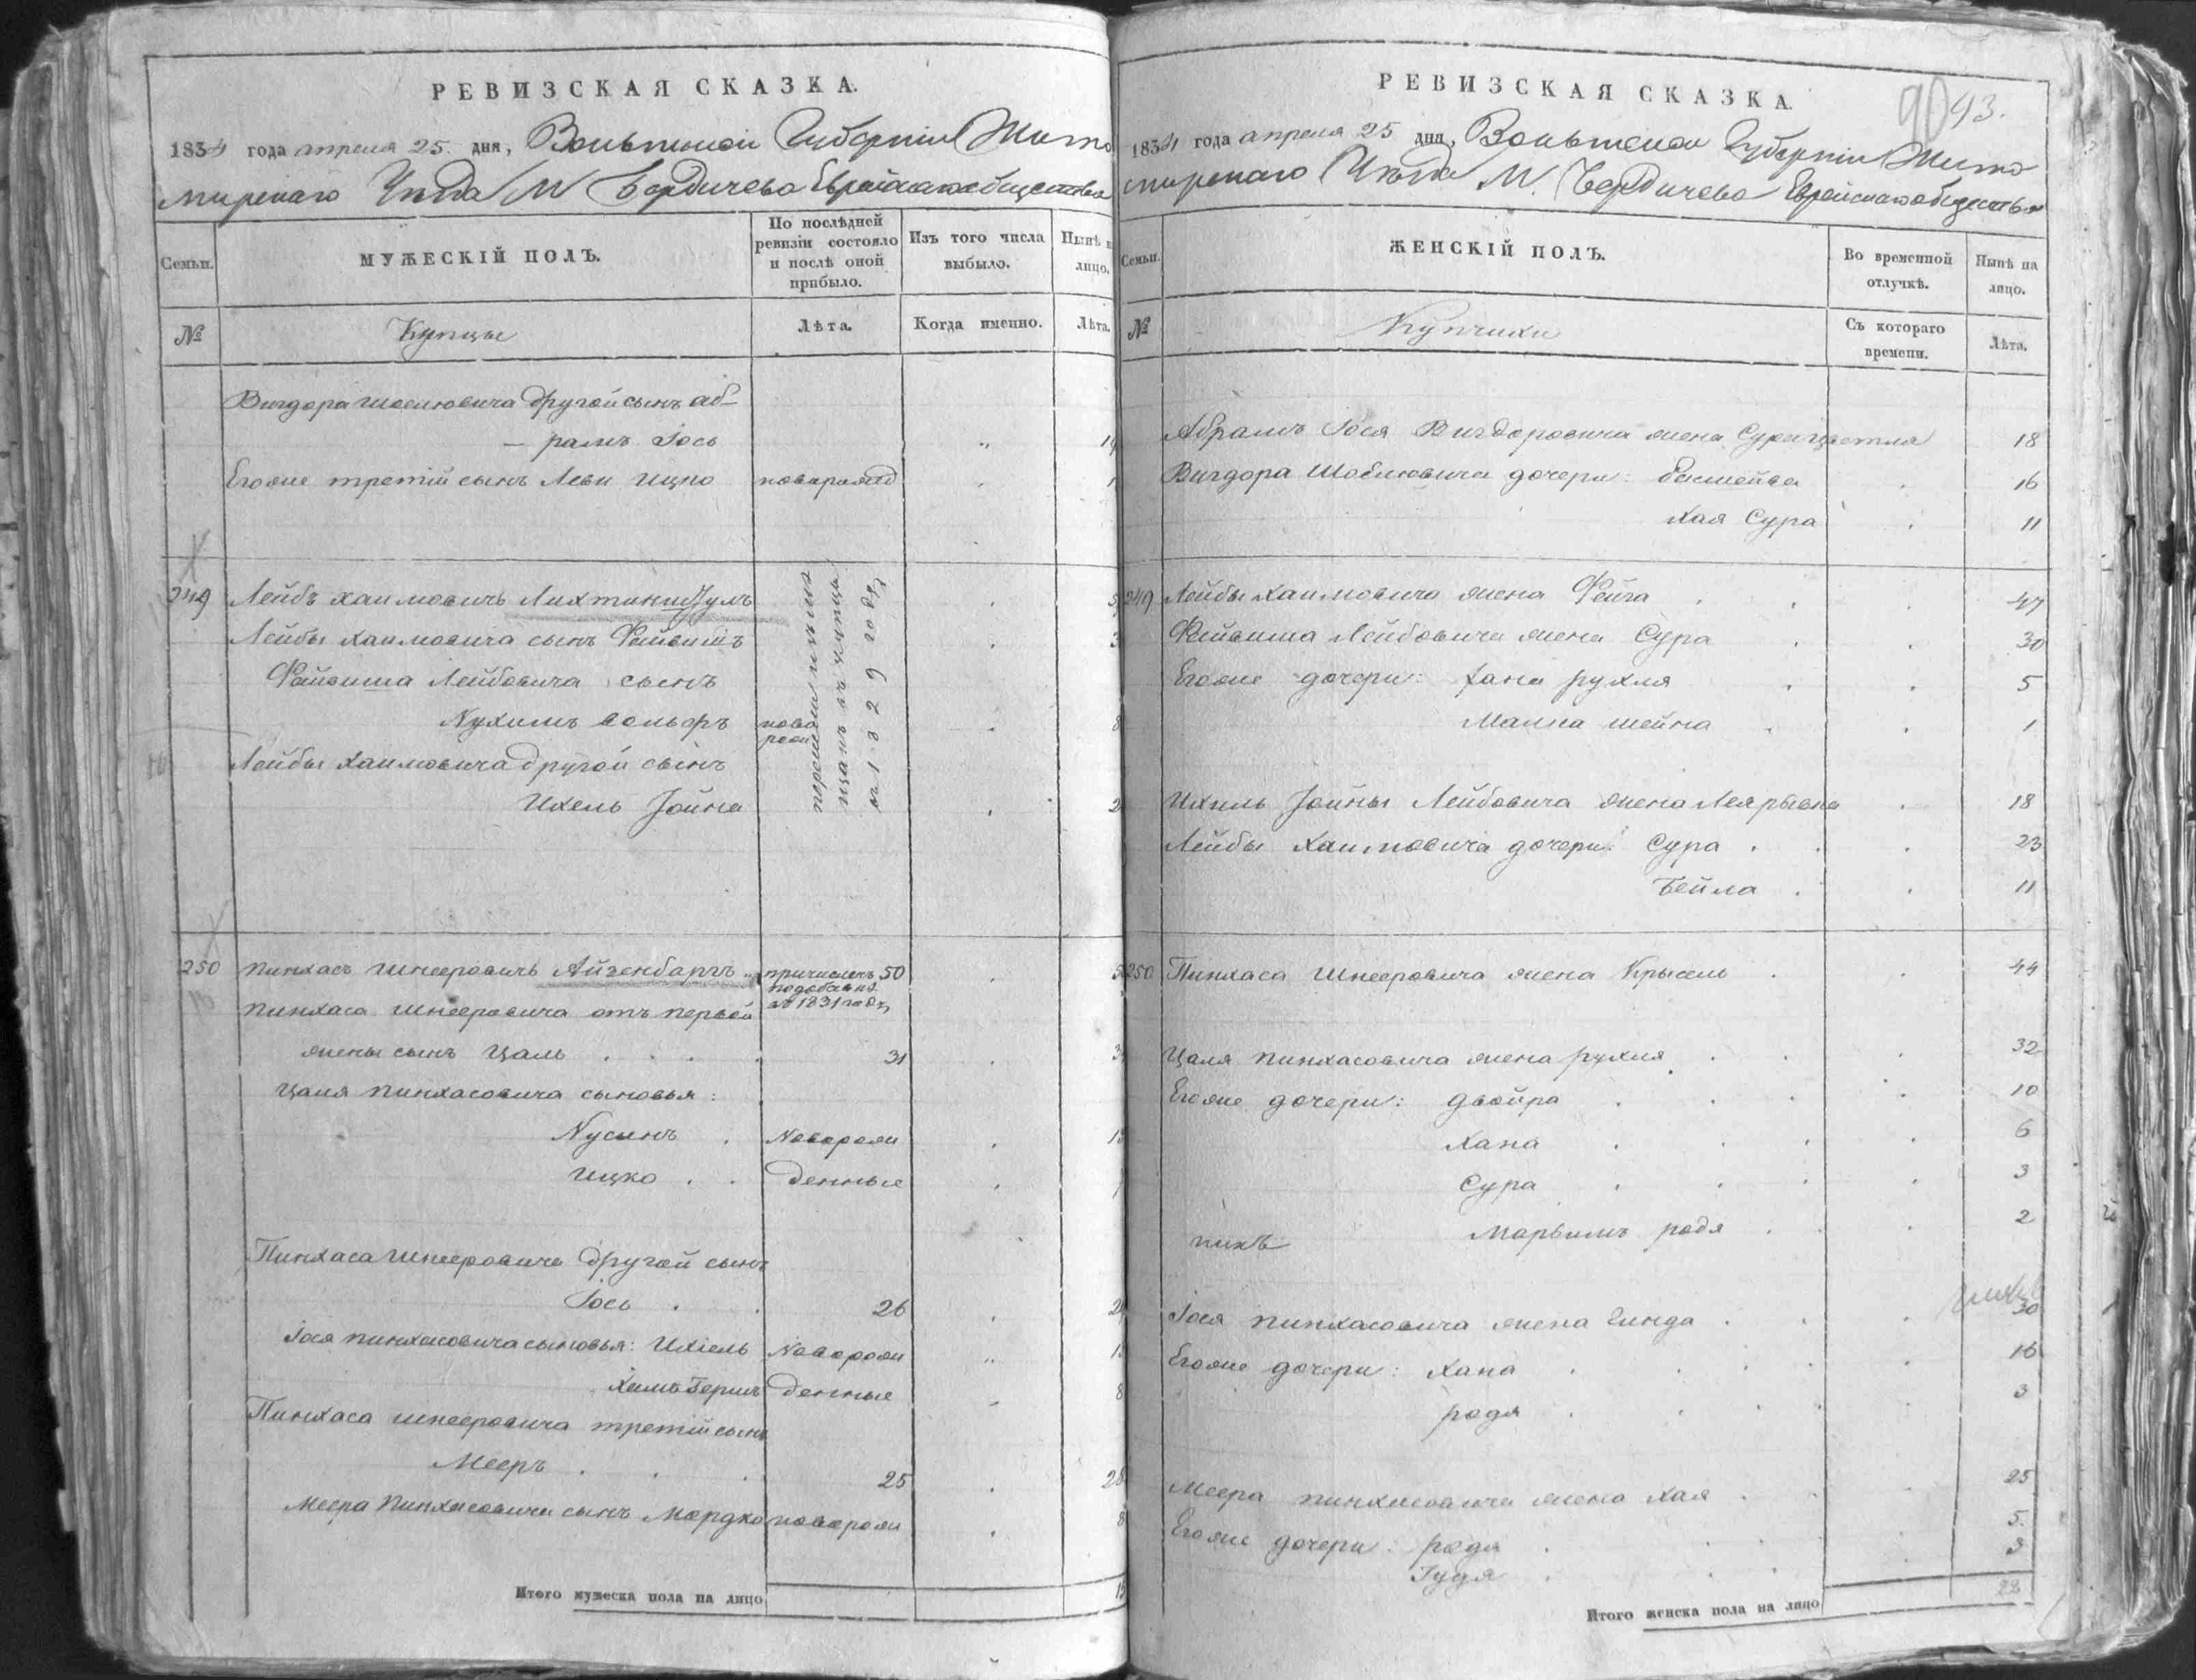 РЕВИЗСКАЯ СКАЗКА.
1834 года апреля 25. дня, Волынской Губерніи Жито
мирскаго Уезда М Бердичева Еврейскаго общества
Семьи.
МУЖЕСКІЙ ПОЛЪ.
По послѣдней ревизіи состояло и послѣ оной прибыло.
Изъ того числа выбыло.
Нынѣ на лицо.
№
Купцы
Лѣта.
Когда именно.
Лѣта.
Вигдора Шоелювича другой сынъ Аб-
- рамъ Iось
Егоже третій сынъ Леви Ицко новорожд
249 Лейбъ Хаимовичъ
Лейбы Хаимовича сынъ Файвишъ
Файвиша Лейбовича сынъ
Нухимъ Вольфъ ново
рож 8
Лейбы Хаимовича другой сынъ
Ихель Iойна
перешли изъ ме
щанъ въ купцы
въ 1829 году
250 Пинхасъ Шнееровичъ Айзенбаргъ причисленъ 50
въ 1831 году
Пинхаса Шнееровича отъ первой
жены сынъ Цаль 31
Цаля Пинхасовича сыновья:
Нусынъ Новорож
Ицко денные
Пинхаса Шнееровича другой сынъ
Iось 26
Iося Пинхасовича сыновья: Ихіель Новорож
Хаимъ Гершъ денные 8
Пинхаса Шнееровича третій сынъ
Мееръ 25 28
Меера Пинхасовича сынъ Мордко новорож 8
Итого мужеска пола на лицо 15
РЕВИЗСКАЯ СКАЗКА.
90 93.
1834 года апреля 25 дня, Волынской Губерніи Жито
мирскаго Уезда М. Бердичева Еврейскаго общества
Семьи.
ЖЕНСКІЙ ПОЛЪ.
Во временной отлучкѣ.
Нынѣ на лицо.
№
Купчихи
Съ котораго времени.
Лѣта.
Абрамъ Iося Вигдоровича жена Сура Цветля 18
Вигдора Шоелювича дочери: Басшейва 16
Хая Сура 11
249 Лейбы Хаимовича жена Фейга 47
Файвиша Лейбовича жена Сура 30
Егоже дочери: Хана Рухля 5
Малка Шейна 1
Ихиль Iойны Лейбовича жена Лея Рывка 18
Лейбы Хаимовича дочери: Сура 23
Бейла 11
250 Пинхаса Шнееровича жена Крысель 44
Цаля Пинхасовича жена Рухля 32
Егоже дочери: Двойра 10
Хана 6
Сура 3
Марьимъ Родя 2
Iося Пинхасовича жена Гинда 30
Егоже дочери: Хана 16
Родя 3
Меера Пинхасовича жена Хая 25
Егоже дочери: Родя 5.
Гудя 3
Итого женска пола на лицо 22